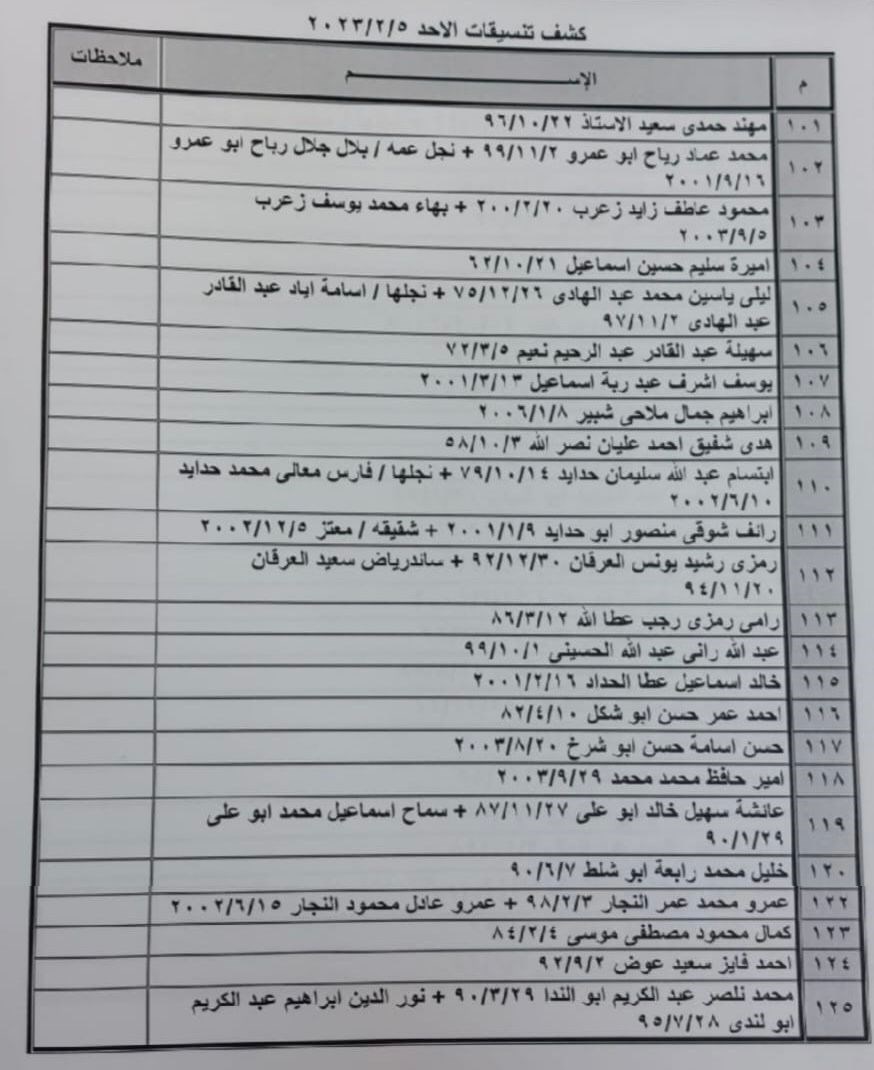 كشف تنسيقات الاحد ٢٠٢٣/٢/٥
م الإســــــم ملاحظات
١٠١ مهند حمدى سعيد الاستاذ ٩٦/١٠/٢٢
١٠٢ محمد عماد رباح ابو عمرو ٩٩/١١/٢ + نجل عمه / بلال جلال رباح ابو عمرو
٢٠٠١/٩/١٦
١٠٣ محمود عاطف زايد زعرب ٢٠٠/٢/٢٠ + بهاء محمد يوسف زعرب
٢٠٠٣/٩/٥
١٠٤ اميرة سليم حسين اسماعيل ٦٢/١٠/٢١
١٠٥ ليلى ياسين محمد عبد الهادى ٧٥/١٢/٢٦ + نجلها / اسامة اياد عبد القادر
عبد الهادى ٩٧/١١/٢
١٠٦ سهيلة عبد القادر عبد الرحيم نعيم ٧٢/٣/٥
١٠٧ يوسف اشرف عبد ربة اسماعيل ٢٠٠١/٣/١٣
١٠٨ ابراهيم جمال ملاحى شبير ٢٠٠٦/١/٨
١٠٩ هدى شفيق احمد عليان نصر الله ٥٨/١٠/٣
١١٠ ابتسام عبد الله سليمان حدايد ٧٩/١٠/١٤ + نجلها / فارس معالى محمد حدايد
٢٠٠٢/٦/١٠
١١١ رائف شوقى منصور ابو حدايد ٢٠٠١/١/٩ + شقيقه / معتز ٢٠٠٢/١٢/٥
١١٢ رمزى رشيد يونس العرقان ٩٢/١٢/٣٠ + ساندرياض سعيد العرقان
٩٤/١١/٢٠
١١٣ رامى رمزى رجب عطا الله ٨٦/٣/١٢
١١٤ عبد الله رانى عبد الله الحسينى ٩٩/١٠/١
١١٥ خالد اسماعيل عطا الحداد ٢٠٠١/٢/١٦
١١٦ احمد عمر حسن ابو شكل ٨٢/٤/١٠
١١٧ حسن اسامة حسن ابو شرخ ٢٠٠٣/٨/٢٠
١١٨ امير حافظ محمد محمد ٢٠٠٣/٩/٢٩
١١٩ عائشة سهيل خالد ابو على ٨٧/١١/٢٧ + سماح اسماعيل محمد ابو على
٩٠/١/٢٩
١٢٠ خليل محمد رابعة ابو شلط ٩٠/٦/٧
١٢٢ عمرو محمد عمر النجار ٩٨/٢/٣ + عمرو عادل محمود النجار ٢٠٠٢/٦/١٥
١٢٣ كمال محمود مصطفى موسى ٨٤/٢/٤
١٢٤ احمد فايز سعيد عوض ٩٢/٩/٢
١٢٥ محمد نلصر عبد الكريم ابو الندا ٩٠/٣/٢٩ + نور الدين ابراهيم عبد الكريم
ابو لندى ٩٥/٧/٢٨